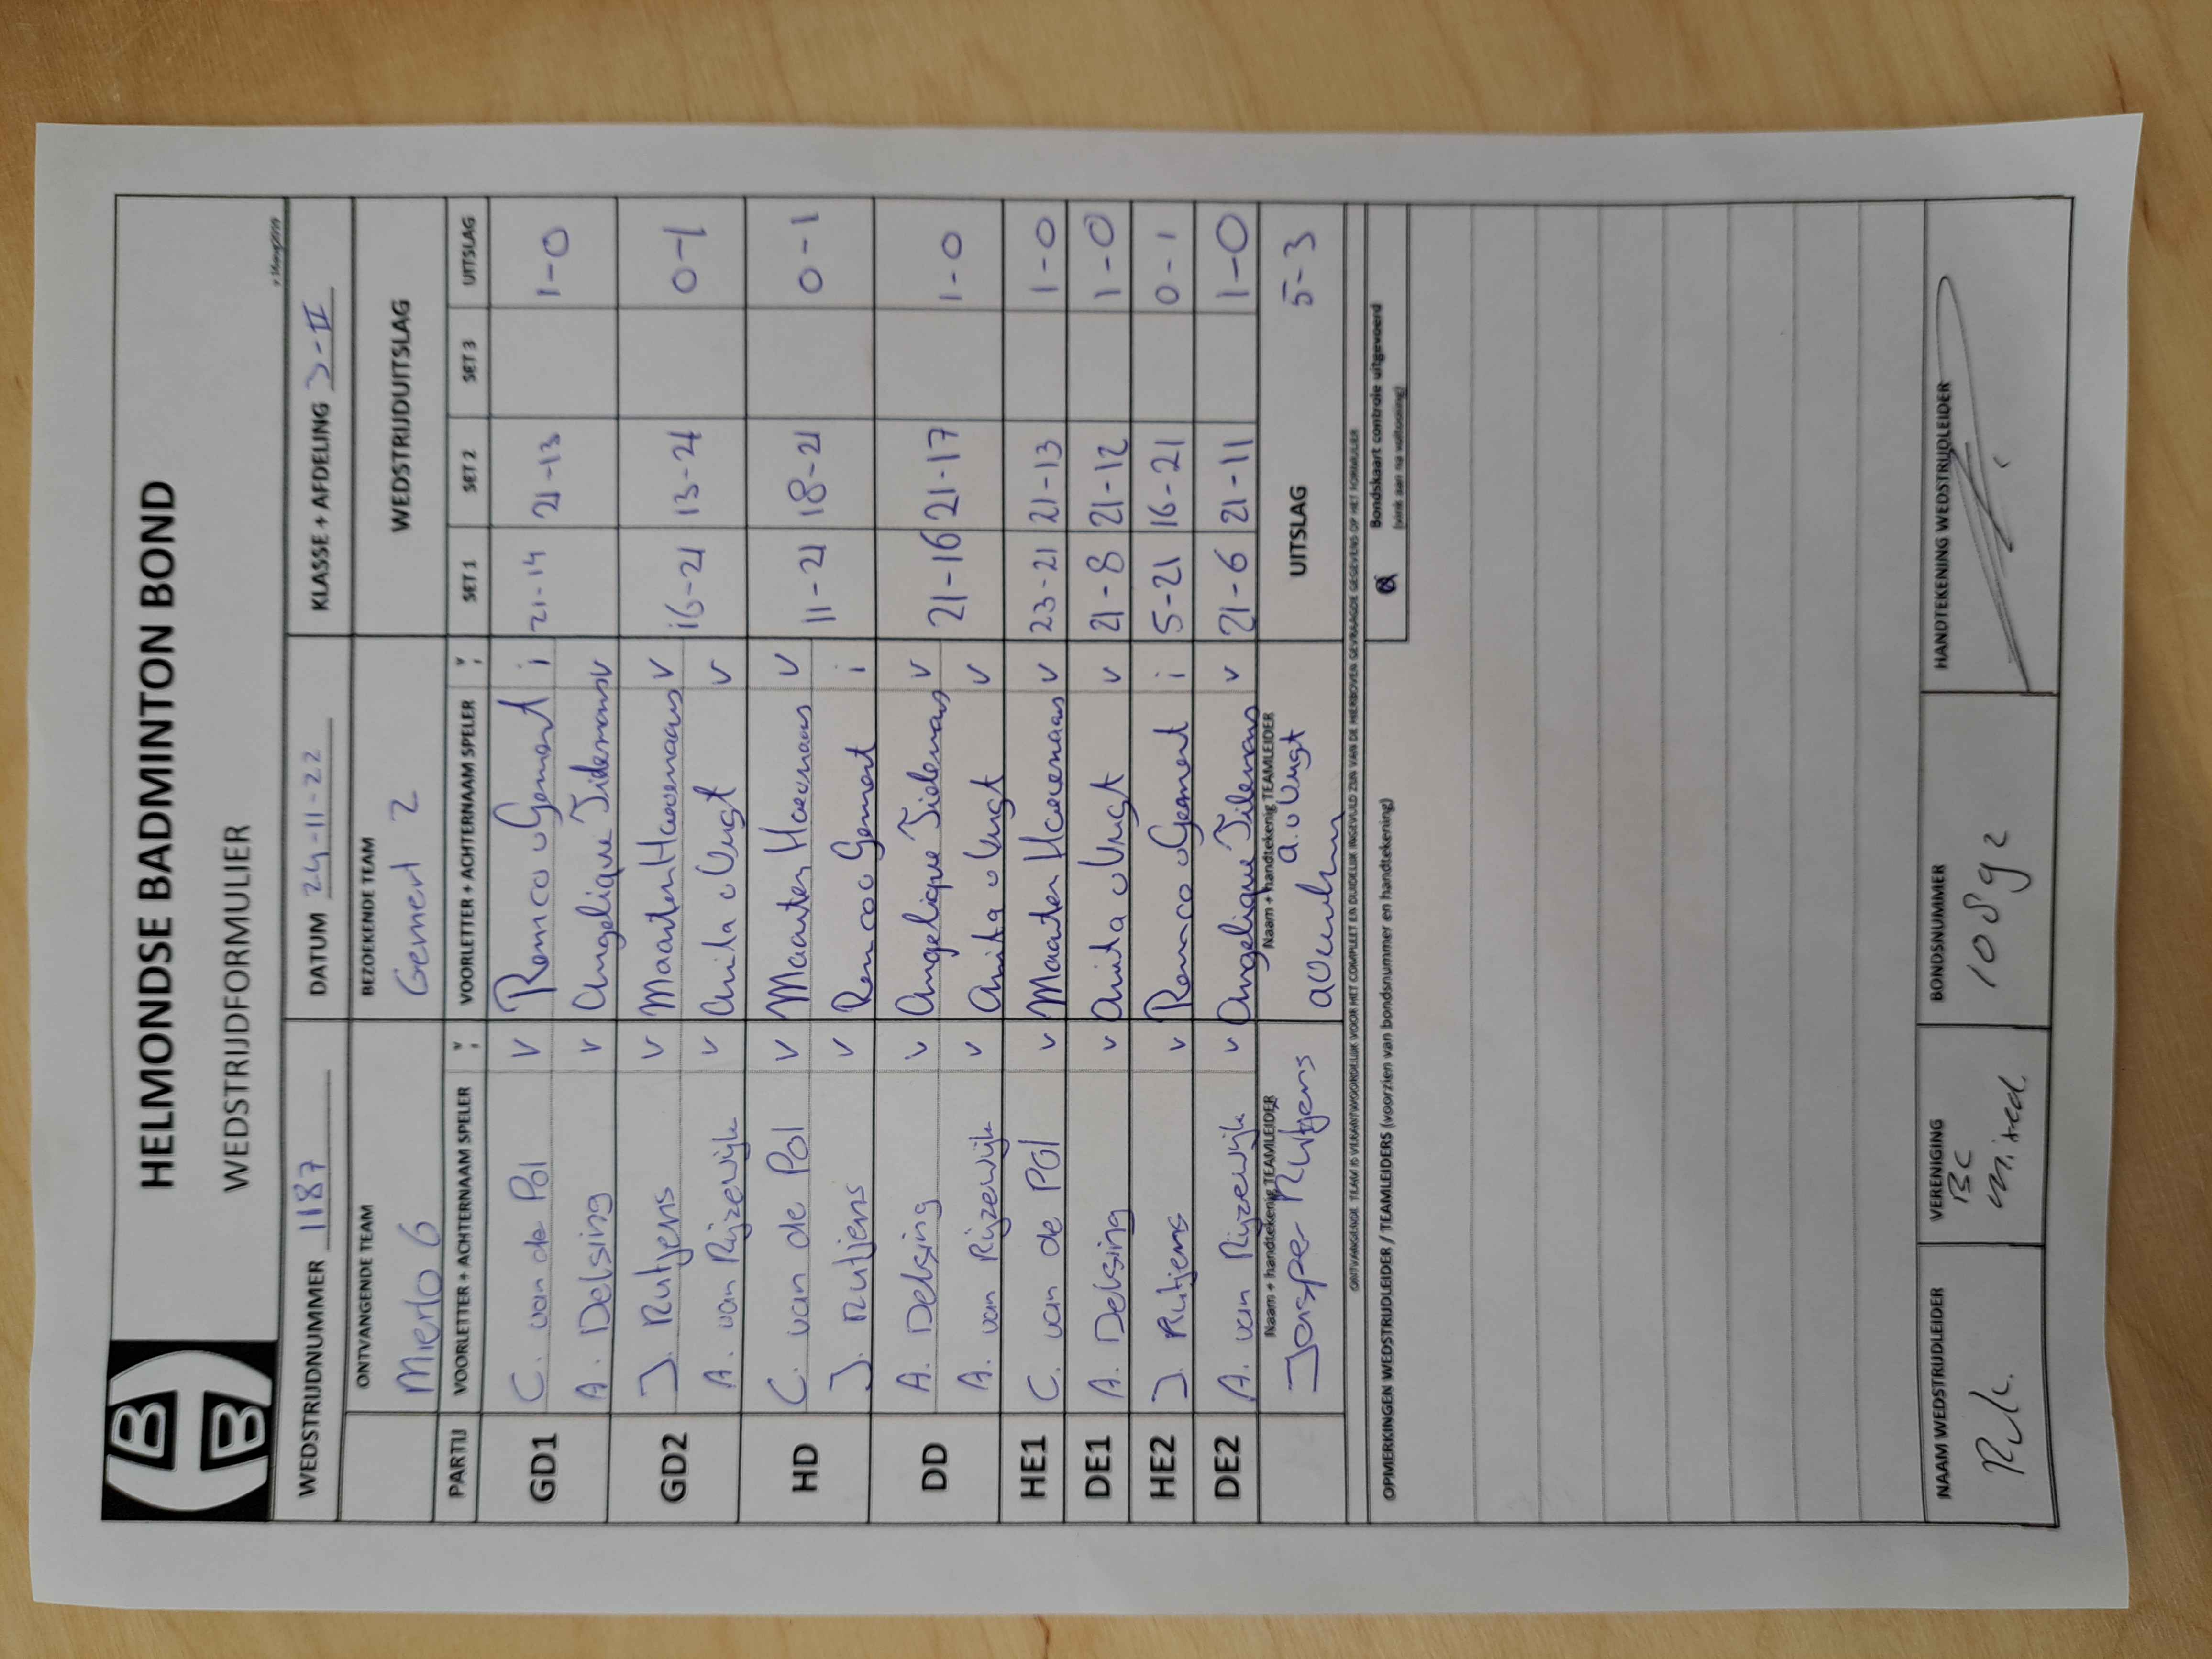 HELMONDSE BADMINTON BOND
WEDSTRIJDFORMULIER
WEDSTRIJDNUMMER 1187 DATUM 24-11-22 KLASSE + AFDELING 3-II
ONTVANGENDE TEAM BEZOEKENDE TEAM WEDSTRIJDUITSLAG
Mierlo 6 Gemert 2
PARTIJ VOORLETTER + ACHTERNAAM SPELER VOORLETTER + ACHTERNAAM SPELER SET 1 SET 2 SET 3 UITSLAG
GD1 C. van de Pol V Remco v Gemert i 21-14 21-13 1-0
A. Delsing v Angelique Tielemans v
GD2 J. Rutjens V Maarten Havenaars V 16-21 13-21 0-1
A. van Rijzewijk v Anita v Vugt v
HD C. van de Pol V Maarten Havenaars V 11-21 18-21 0-1
J. Rutjens V Remco v Gemert i
DD A. Delsing v Angelique Tielemans v 21-16 21-17 1-0
A. van Rijzewijk v Anita v Vugt v
HE1 C. van de Pol v Maarten Havenaars v 23-21 21-13 1-0
DE1 A. Delsing v Anita v Vugt v 21-8 21-12 1-0
HE2 J. Rutjens v Remco v Gemert i 5-21 16-21 0-1
DE2 A. van Rijzewijk v Angelique Tilemans v 21-6 21-11 1-0
Naam + handtekenig TEAMLEIDER Naam + handtekenig TEAMLEIDER UITSLAG 5-3
Jasper Rutjens a. v Vugt
ONTVANGENDE TEAM IS VERANTWOORDELIJK VOOR HET COMPLEET EN DUIDELIJK INGEVULD ZIJN VAN DE HIERBOVEN GEVRAAGDE GEGEVENS OP HET FORMULIER
OPMERKINGEN WEDSTRIJDLEIDER / TEAMLEIDERS (voorzien van bondsnummer en handtekening) Bondskaart controle uitgevoerd
(vink aan na voltooiing)
NAAM WEDSTRIJDLEIDER VERENIGING BONDSNUMMER HANDTEKENING WEDSTRIJDLEIDER
BC 10892